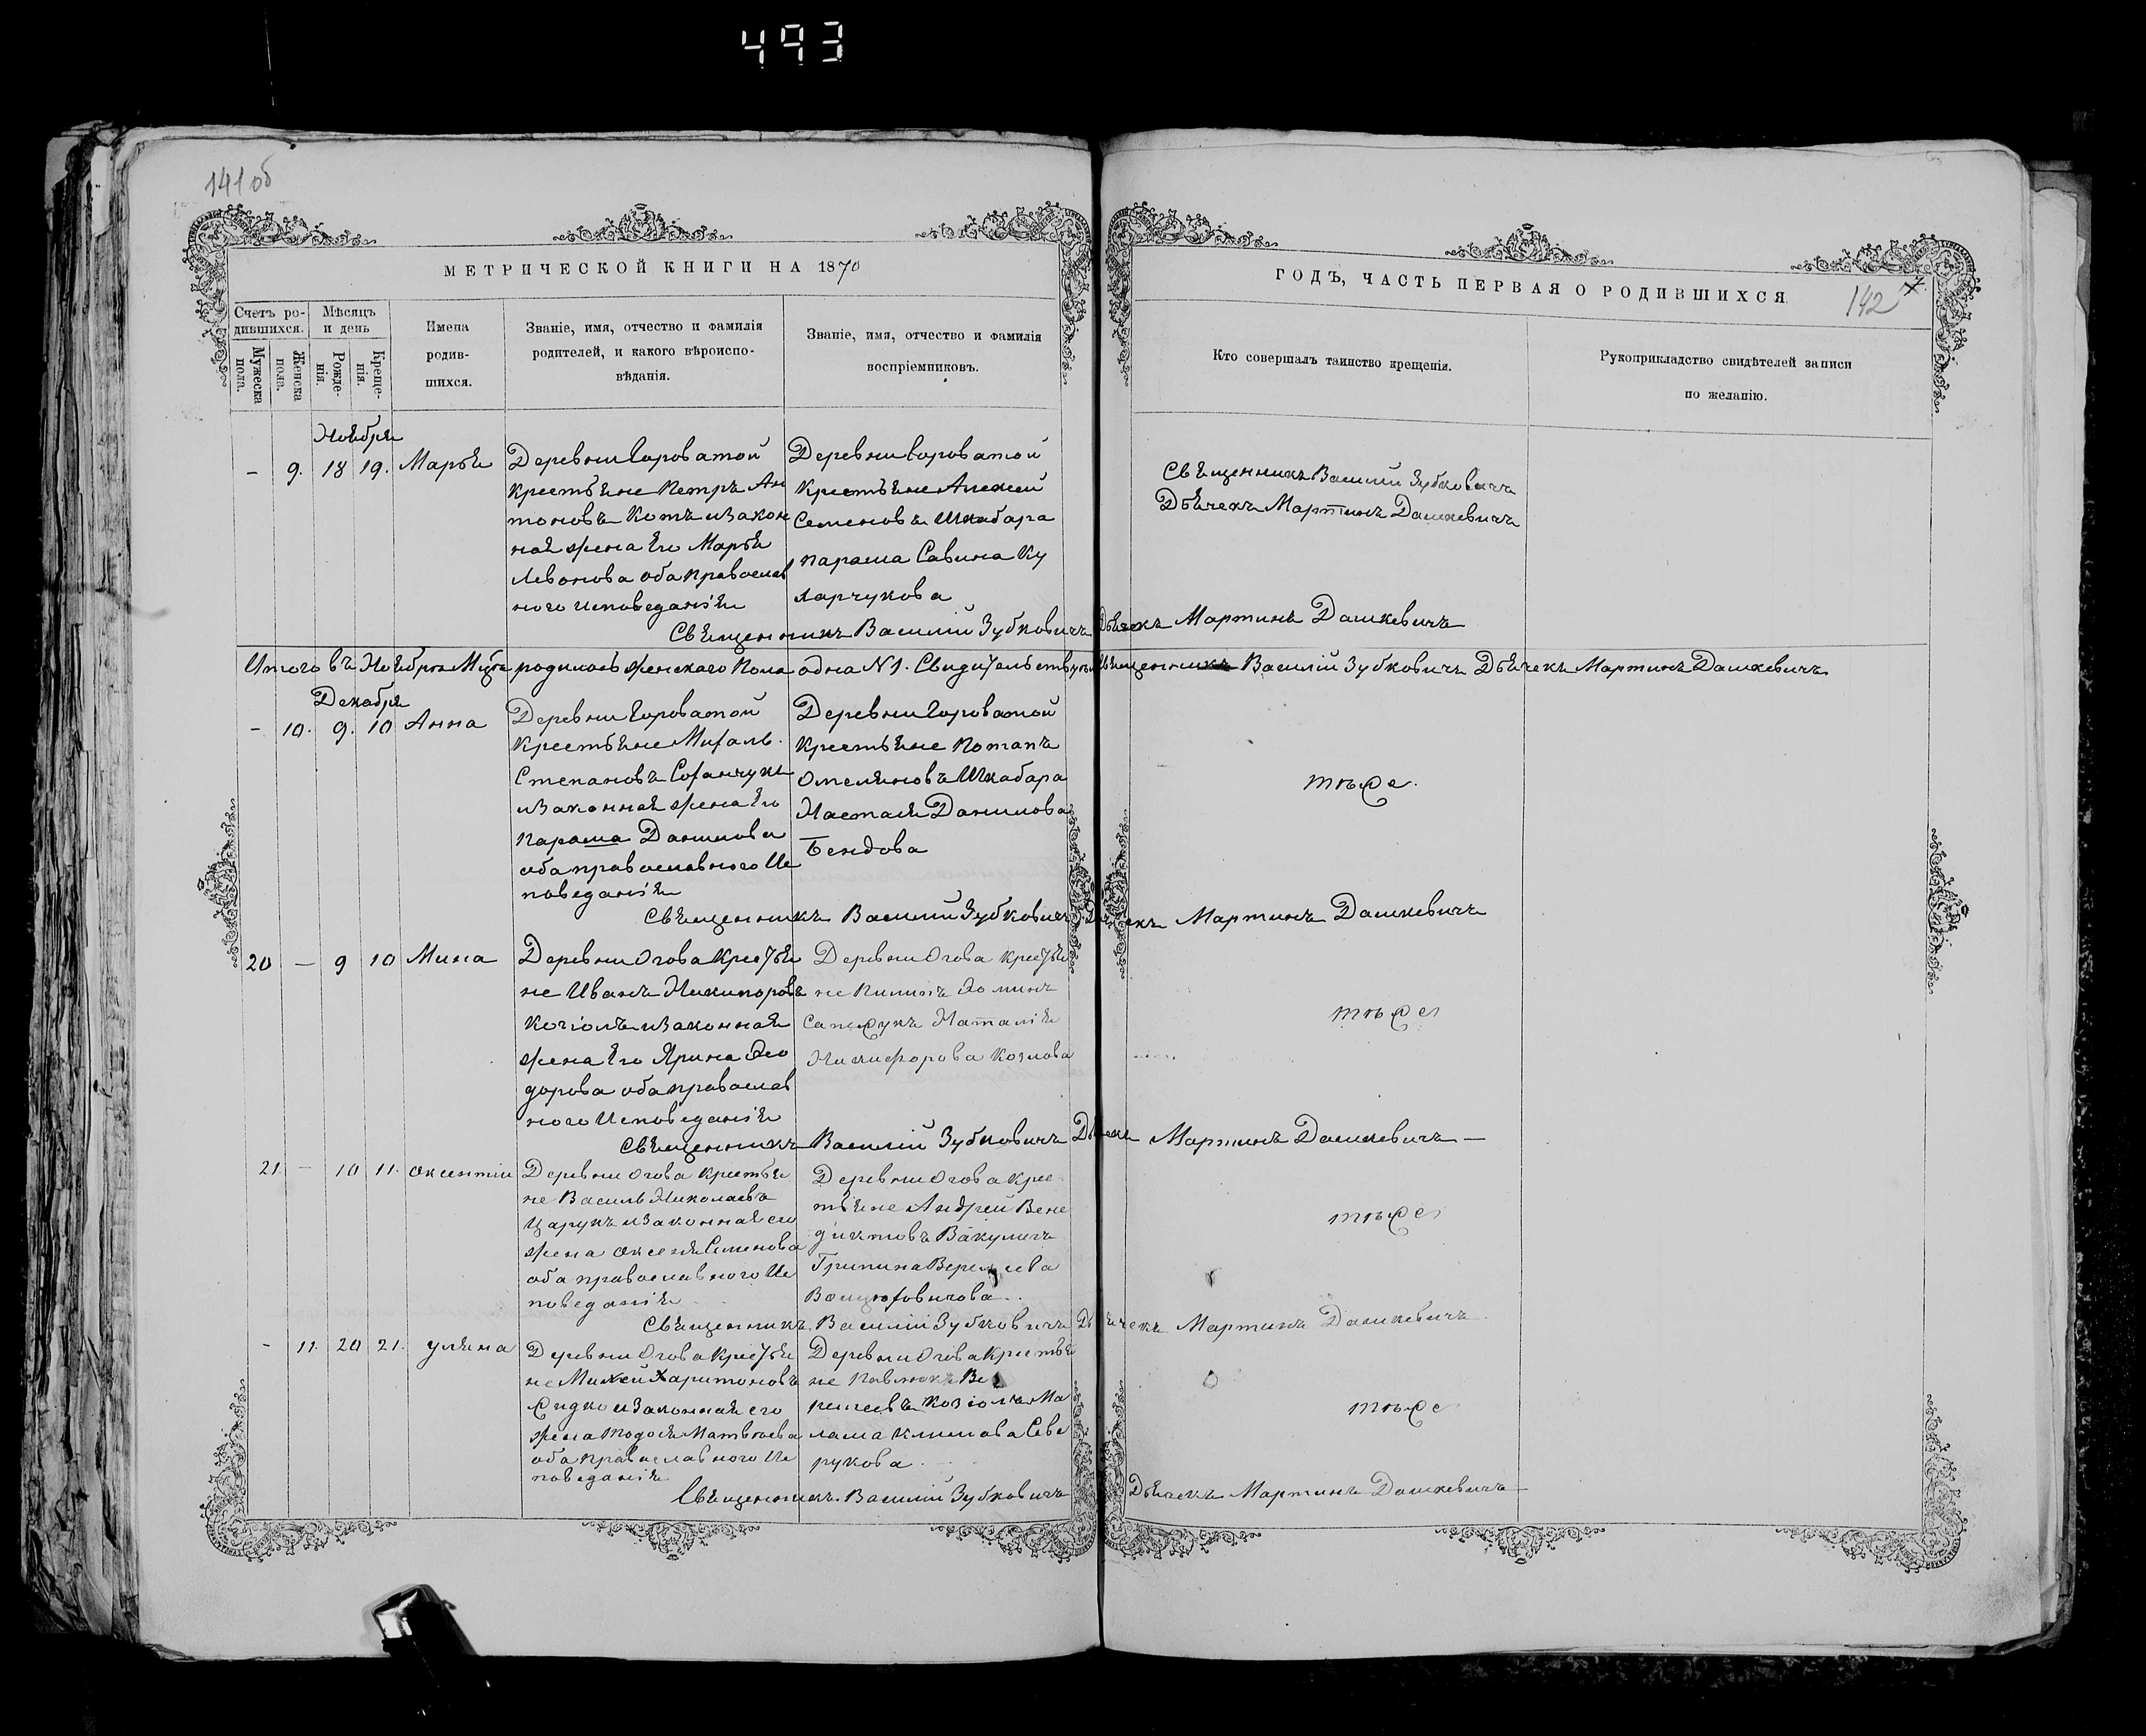 493
141об
МЕТРИЧЕСКОЙ КНИГИ НА 1870
ГОДЪ, ЧАСТЬ ПЕРВАЯ О РОДИВШИХСЯ
142
Счетъ ро-
дившихся.
Мужеска пола.
Женска пола.
Мѣсяцъ
и день
Рожде-
нія.
Креще-
нія.
Имена
родив-
шихся.
Званіе, имя, отчество и фамилія
родителей, и какого вѣроиспо-
вѣданія.
Званіе, имя, отчество и фамилія
воспріемниковъ.
Кто совершалъ таинство крещенія.
Рукоприкладство свидѣтелей записи
по желанію.
Ноября
- 9. 18 19. Марья
Деревни Гороватой
крестьяне Петръ Ан
тоновъ Котъ изакон
ная жена Его Марья
Левонова оба православ
ного исповеданія
Деревни Гороватой
крестьяне Алексей
Семеновъ Шкабара
параша Савина Ку
ларчукова
Священникъ Василій Зубковичъ
Дьячекъ Мартинъ Дашкевичъ
Священникъ Василій Зубковичъ Дьячекъ Мартинъ Дашкевичъ
Итого въ Ноябрѣ родилось женскаго Пола одна N1. Священникъ Василій Зубковичъ Дьячекъ Мартинъ Дашкевичъ
Декабря
- 10. 9. 10 Анна
Деревни Гороватой
Крестьяне
Степановъ
изаконная жена Его
Параша Данилова
оба православного Ис
поведанія
Деревни Гороватой
крестьяне Потапъ
Омеляновъ Шкабара
Настася Данилова
Бендова
тоже.
Священникъ Василій Зубковичъ Дьячекъ Мартинъ Дашкевичъ
20 — 9 10 Мина
Деревни Огова Крестья
не Иванъ Никипоровъ
Козіолъ изаконная
жена Его Ярина Ѳео
дорова оба православ
ного Исповеданія
Деревни Огова крестья
не
Наталія
Никифорова Козлова
тоже
Священникъ Василій Зубковичъ Дьячекъ Мартинъ Дашкевичъ —
21. — 10 11. Оксентій
Деревни Огова крестья
не Василь Николаевъ
Царукъ изаконная его
жена Оксеня Семенова
оба православного Ис
поведанія
Деревни Огова крес
тьяне Андрей Вене
диктовъ Вакуличъ
Грипина
тоже
Священникъ Василій Зубковичъ Дьячекъ Мартинъ Дашкевичъ.
- 11. 20 21. Уляна
Деревни Огова Крестья
не Михей Харитоновъ
изаконная его
жена Тодося Матвѣева
оба православного Ис
поведанія
Деревни Огова Крестья
не Павлюкъ Ве
Козіолъ Ма
лаша Климова Севе
рукова
тоже
Священникъ Василій Зубковичъ Дьячекъ Мартинъ Дашкевичъ